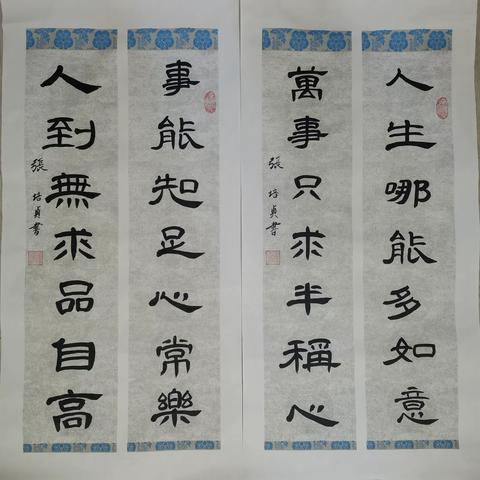 人生哪能多如意
萬事只求半稱心
張培貞書
事能知足心常樂
人到無求品自高
張培貞書